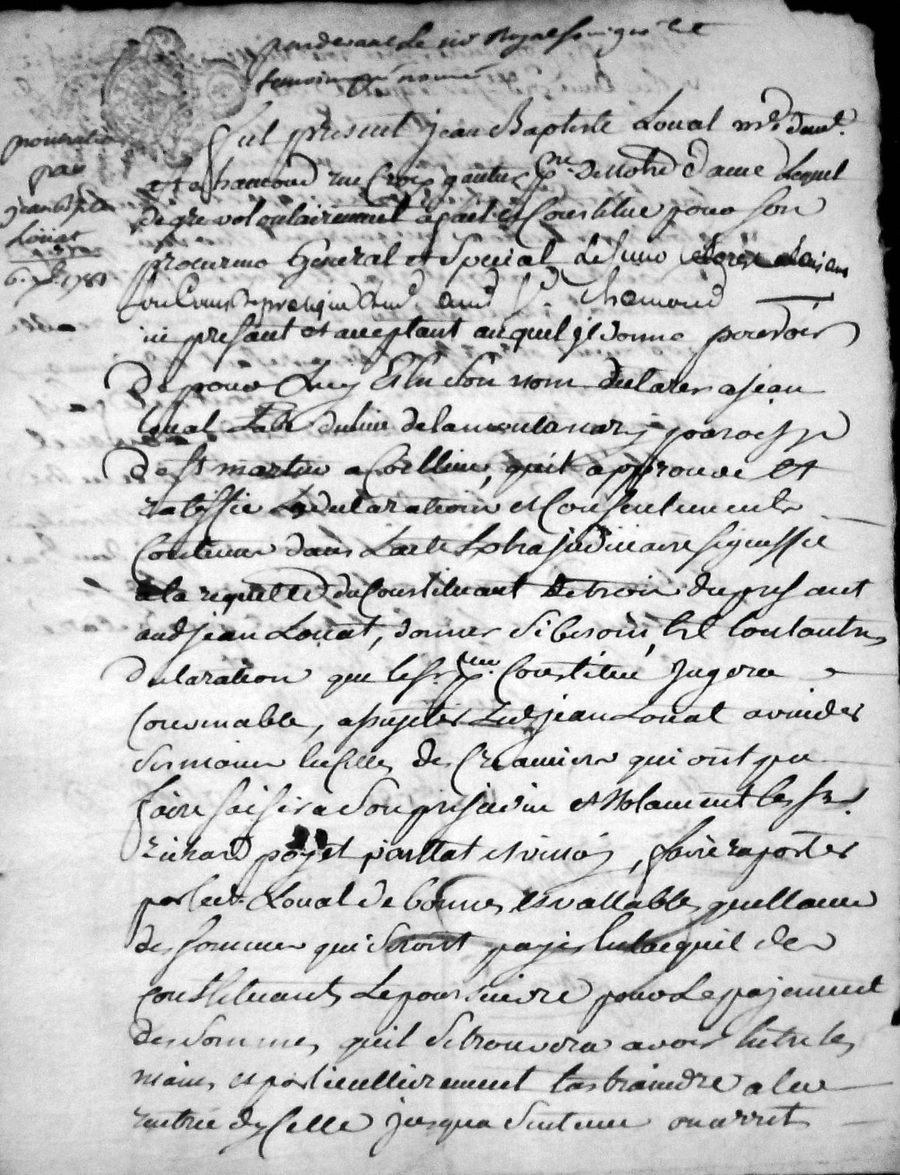 pardevant le no.re Royal soussigné et
temoins
procuration
par
jean Bpte
Louat
6. 7bre 1781
fut present jean Baptiste Louat md. dud.
st chamond rue Croix gautier psse. de Notre dame Lequel
de gre volontairement a fait et Constitué pour son
procureur General et Special
st. Chamond
icy present et acceptant auquel il donne pouvoir
de pour Luy Et En son nom declarer a jean
Louat Labr. du lieu de paroisse
de st martin a Coallieu, quil approuve et
ratiffie La declaration et Consentement
Contenu dans L'acte Extrajudiciaire signiffié
a la requette du Constituant Le trois du present
aud. jean Louat, donner si besoin Est touttautre
declaration que le sr. pr. Constitué jugera
Convenable, assujetir Led. jean Louat a vuider
ses mains En Celles des Creanciers qui ont pu
faire saisir a son prejudice et Notament les srs.
Richard poyet, faire raporter
par led. Louat de bonnes et vallables quittances
des sommes qui seront payés En lacquit du
Constituant, Le poursuivre pour Le payement
des sommes quil se trouvera avoir Entre les
mains et particullierement Lastraindre a la
rentrée dycelle jusqua sentence ou arret